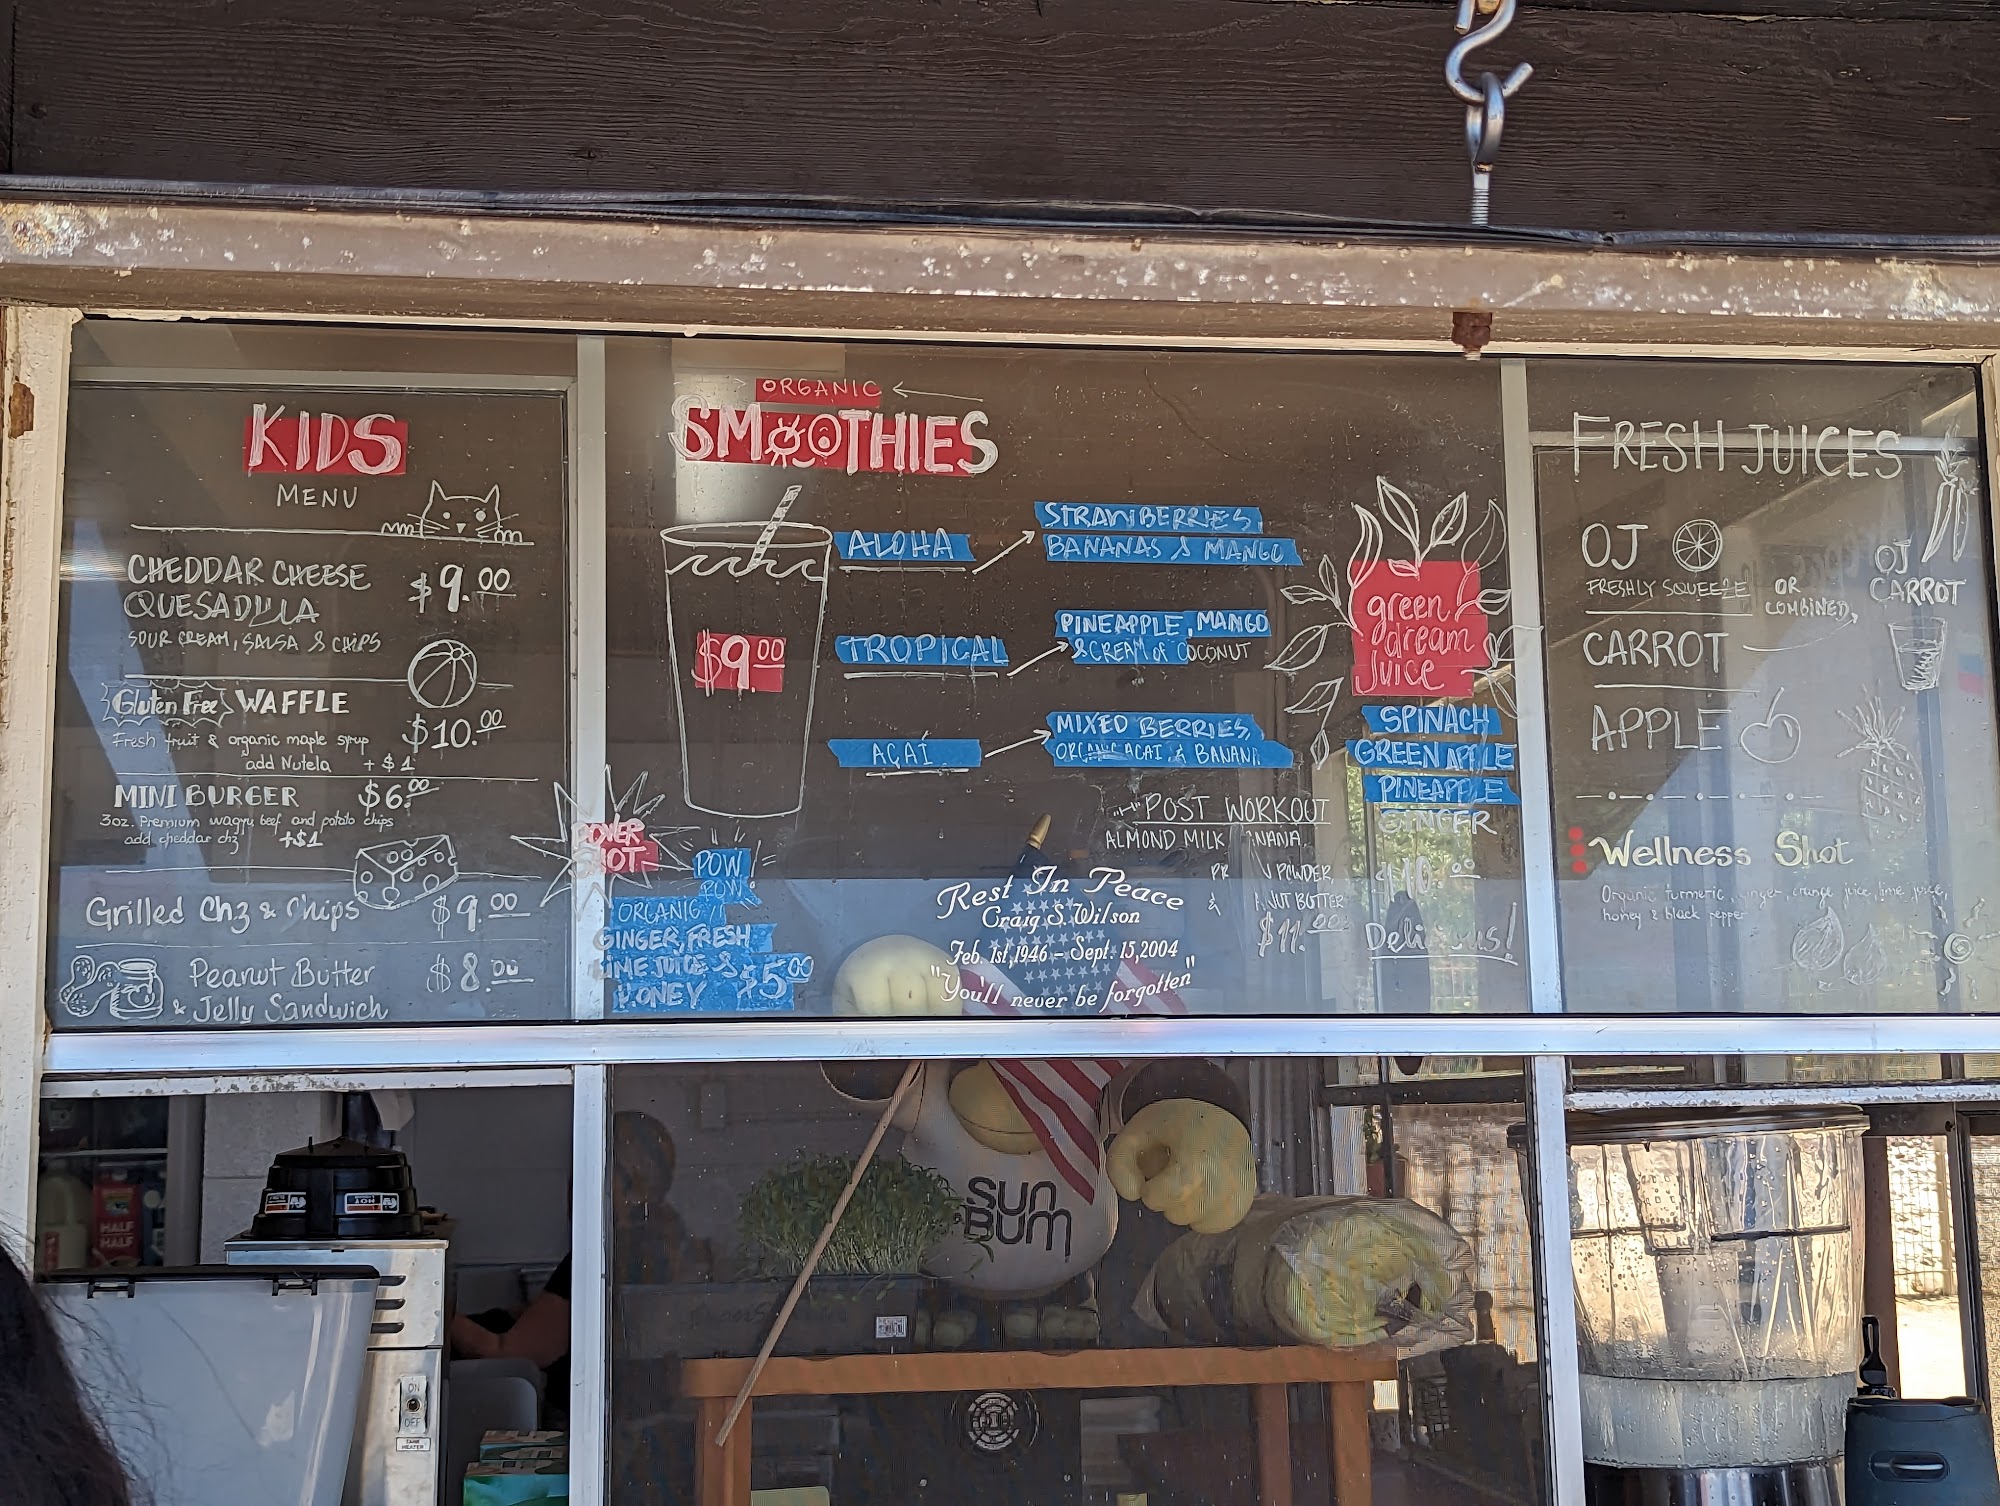 KIDS
MENU
CHEDDAR CHEESE $9.00
QUESADILLA
SOUR CREAM, SALSA & CHIPS
Gluten Free WAFFLE
$10.00
Fresh fruit & organic maple syrup
add Nutela + $1
MINI BURGER $6.00
3oz. Premium wagyu beef and potato chips
add cheddar chz +$1
Grilled Chz & Chips $9.00
Peanut Butter $8.00
& Jelly Sandwich
ORGANIC
SMOOTHIES
$9.00
ALOHA
STRAWBERRIES
BANANAS & MANGO
TROPICAL
PINEAPPLE, MANGO
& CREAM of COCONUT
AÇAÍ
MIXED BERRIES,
ORGANIC ACAI & BANANA
POST WORKOUT
ALMOND MILK
POWDER,
& BUTTER
$11.00
POWER
SHOT
POW,
POW,
ORGANIC
GINGER, FRESH
LIME JUICE &
HONEY $5.00
Rest In Peace
Craig S. Wilson
Feb. 1st, 1946 - Sept. 15, 2004
"You'll never be forgotten"
green
dream
juice
SPINACH
GREEN APPLE
PINEAPPLE
GINGER
$10.00
Delicious!
FRESH JUICES
OJ
FRESHLY SQUEEZE
OR
COMBINED,
OJ
CARROT
CARROT
APPLE
Wellness Shot
Organic turmeric, ginger, orange juice, lime juice,
honey & black pepper
HALF
HALF
SUN
BUM
ON
OFF
TANK
HEATER